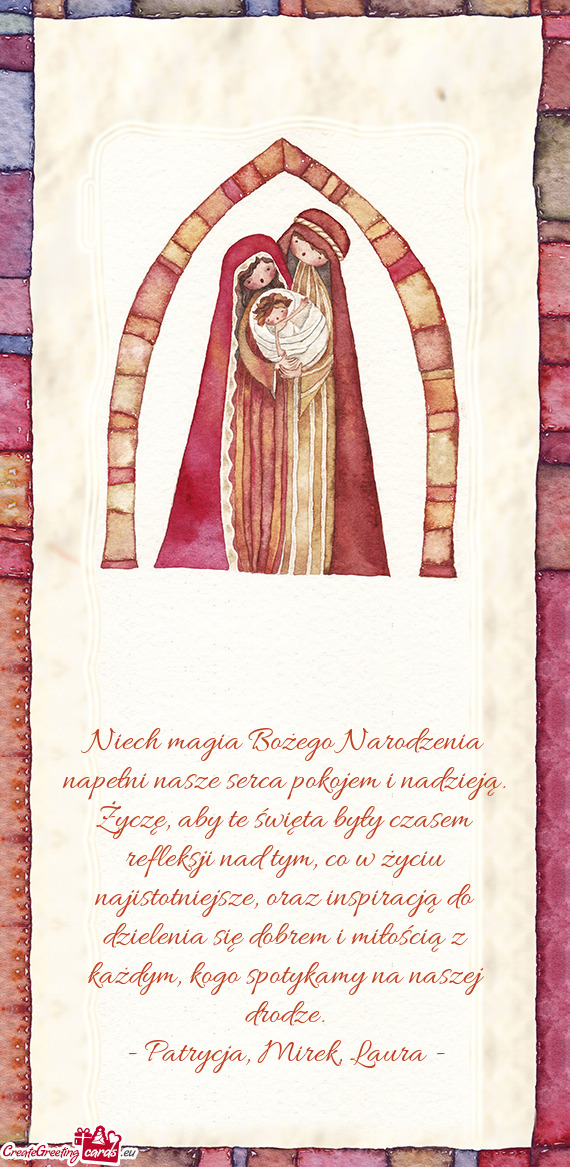 Niech magia Bożego Narodzenia
napełni nasze serca pokojem i nadzieją.
Życzę, aby te święta były czasem
refleksji nad tym, co w życiu
najistotniejsze, oraz inspiracją do
dzielenia się dobrem i miłością z
każdym, kogo spotykamy na naszej
drodze.
- Patrycja, Mirek, Laura -
CreateGreeting cards .eu